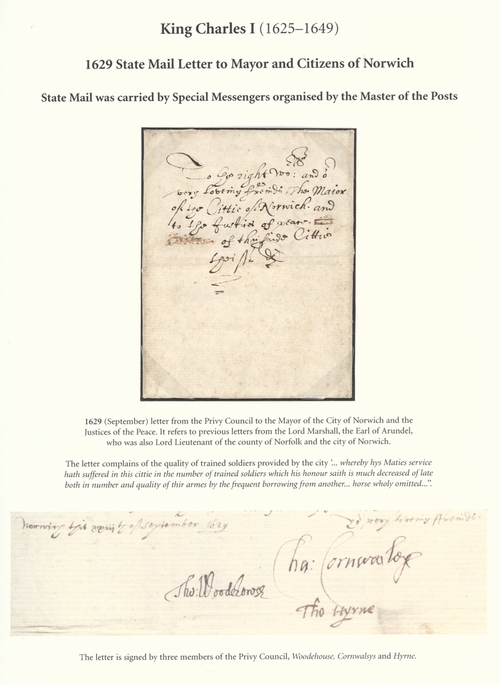 King Charles I (1625–1649)
1629 State Mail Letter to Mayor and Citizens of Norwich
State Mail was carried by Special Messengers organised by the Master of the Posts
To the right wo: and o
very loving freinds The Maior
of the Cittie of Norwich and
to the Justices of peace
of the Cittie
1629 (September) letter from the Privy Council to the Mayor of the City of Norwich and the
Justices of the Peace. It refers to previous letters from the Lord Marshall, the Earl of Arundel,
who was also Lord Lieutenant of the county of Norfolk and the city of Norwich.
The letter complains of the quality of trained soldiers provided by the city '... whereby hys Maties service
hath suffered in this cittie in the number of trained soldiers which his honour saith is much decreased of late
both in number and quality of thir armes by the frequent borrowing from another... horse wholly omitted...".
Norwich this of September 1629
very loveing ffreindes
Cha: Cornwaleys
Tho: Woodehowse
Tho Hyrne
The letter is signed by three members of the Privy Council, Woodehouse. Cornwalsys and Hyrne.